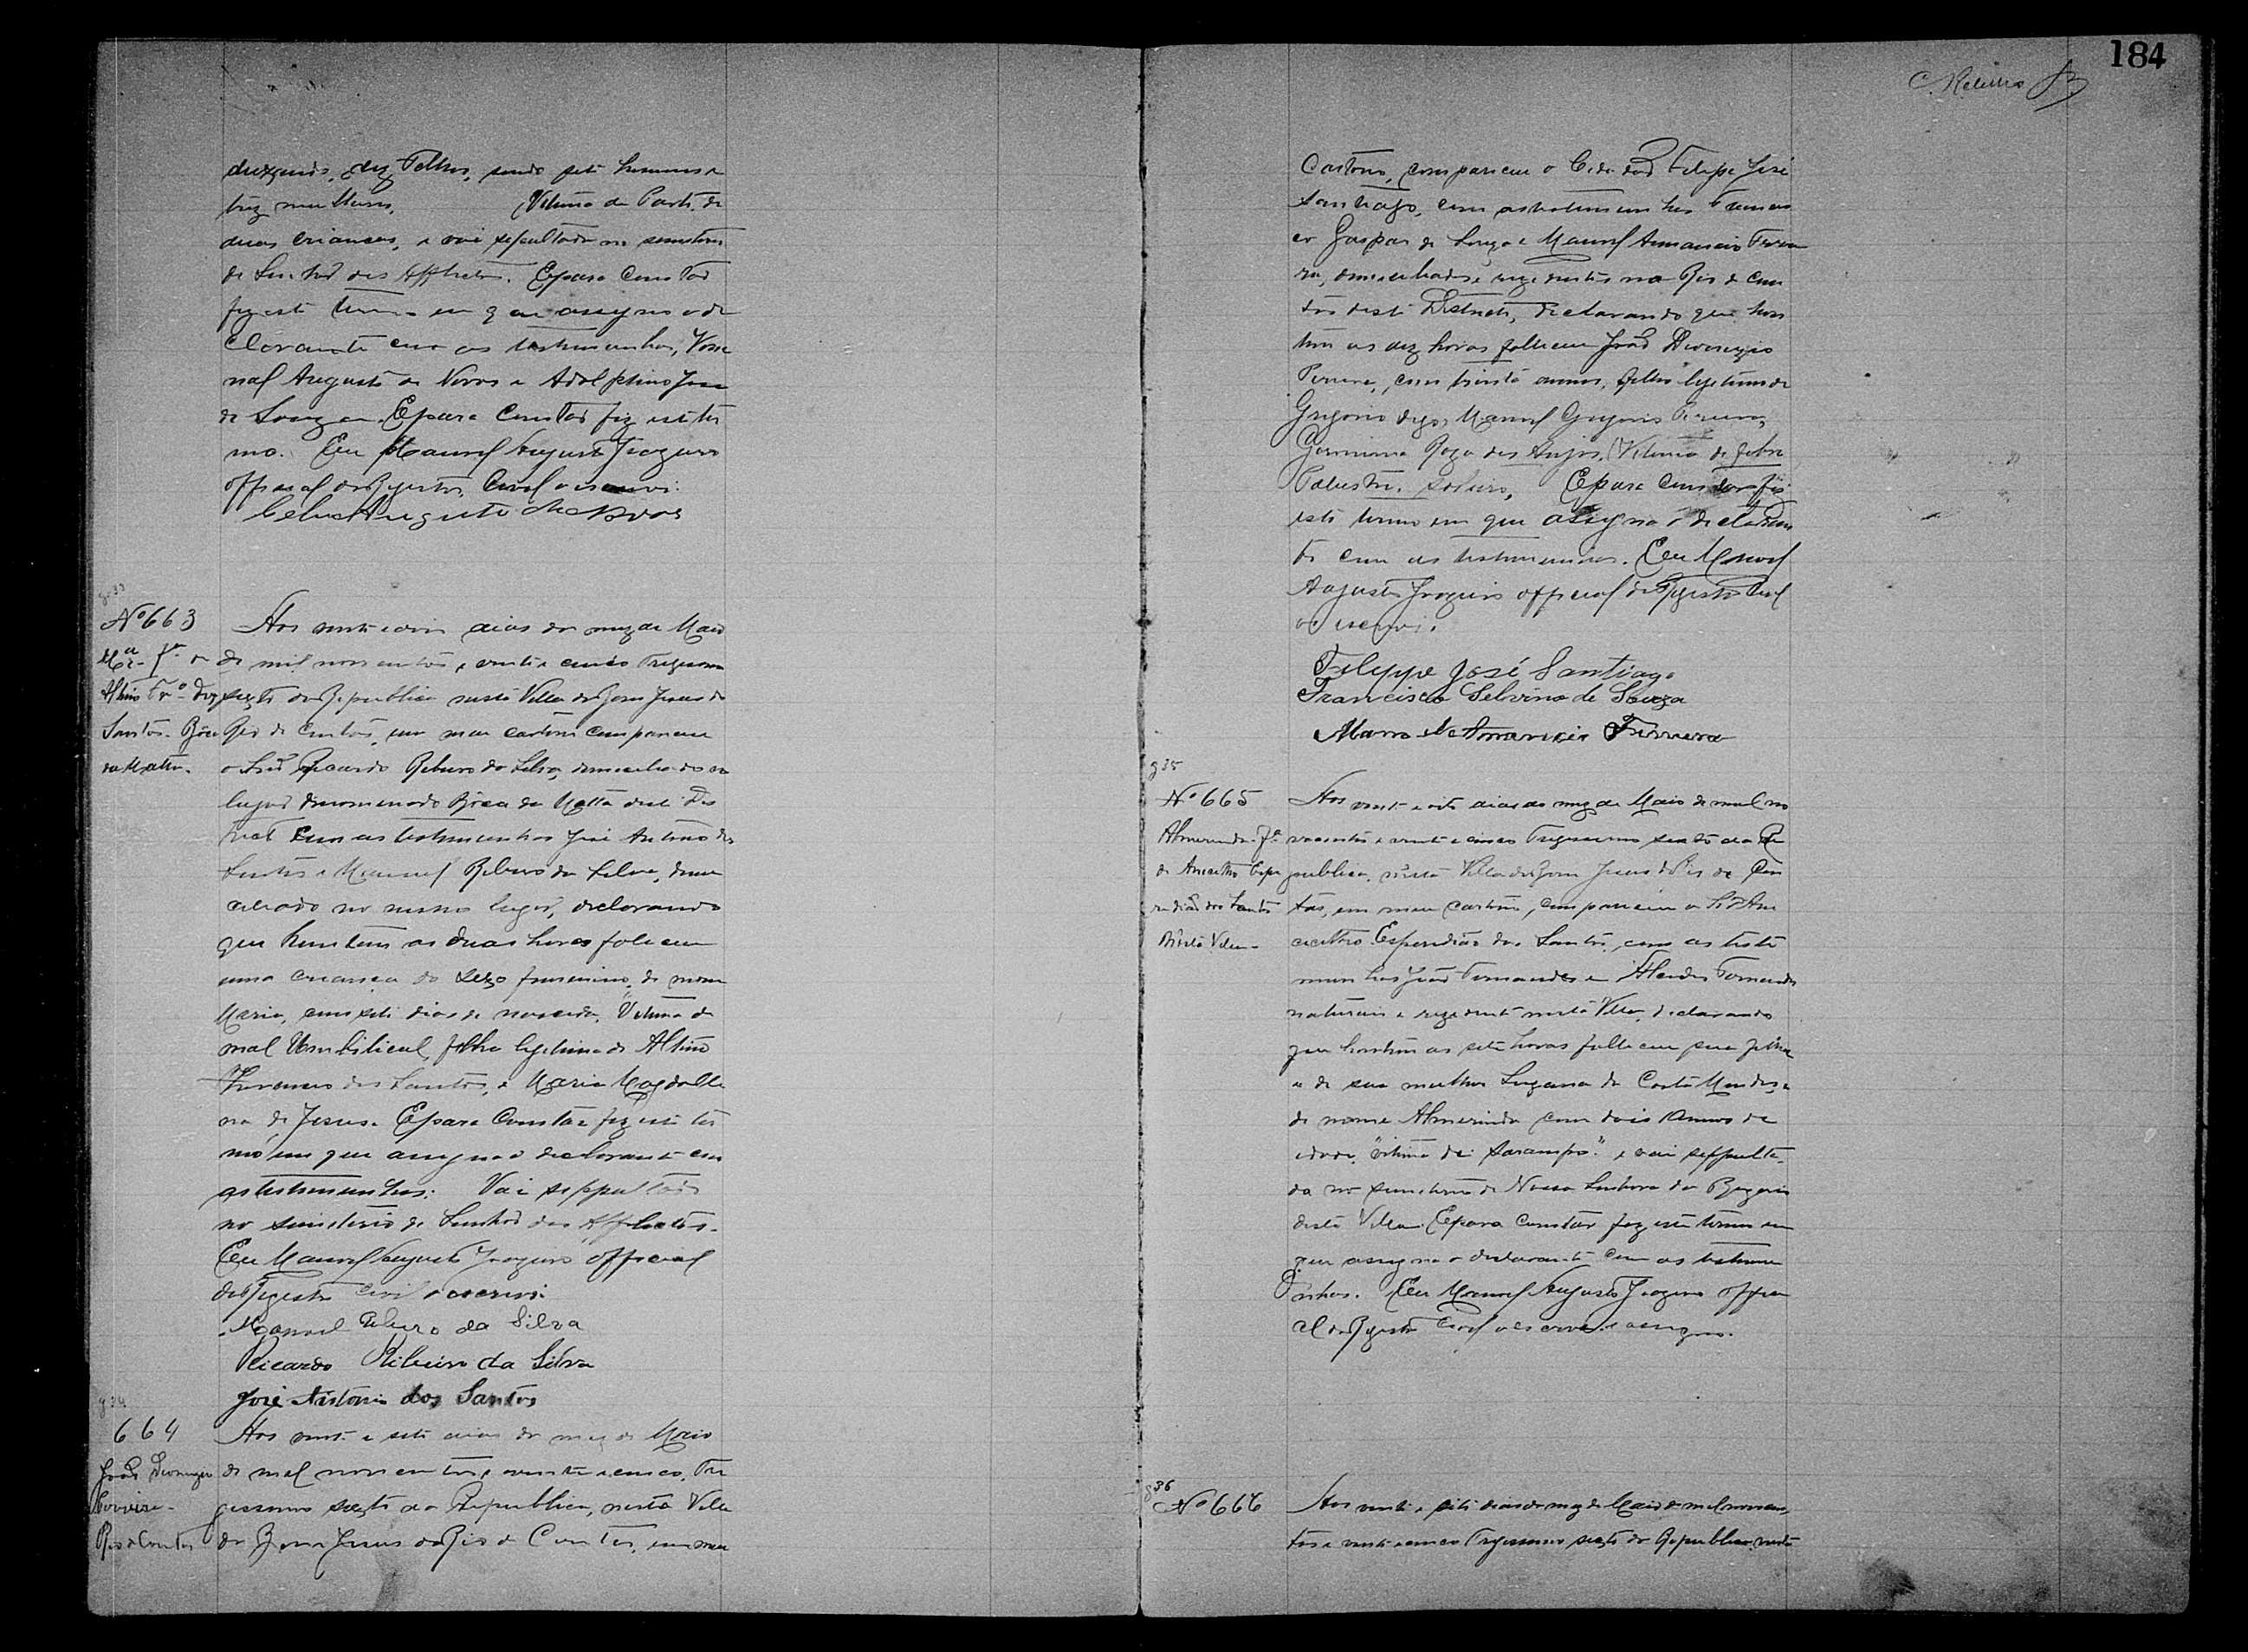 184
dez Folhos, sendo sete homens e
trez mulheres. Vitima de Parto de
duas crianças, e vai sepultada no semiterio
de Senhor dos Afflictos. E para constar
fiz este termo em que assigno o de
clarante com as testimunhas,
Augusto de Novos e Adolphino José
de Souza. E para constar fiz este ter
mo. Eu Manoel Augusto Joazeiro
official do Registro Civil o escrevi.
Augusto de Novos
g 33
Nº 663
Mª fª de
Altino Frº dos
Santos - Bôca
da Matta.
Aos vinte e dois dias do mez de Maio
de mil nove centos e vinte e cinco Trigesimo
sexto da Republica nesta Villa do Bom Jesus do
Rio de Contas, em meu cartorio compareceu
o Snr Ricardo Ribeiro da Silva, domiciliado no
lugar denominado Bôca da Matta deste Dis
tricto com as testimunhas José Antonio dos
Santos e Manoel Ribeiro da Silva, domi
ciliado no mesmo lugar, declarando
que hontem as duas horas faleceu
uma creança do sexo feminino, de nome
Maria, com sete dias de nascida, "Vitima de
mal Umbilical", filha legitima de Altino
dos Santos, e Maria Magdalle
na de Jesus. E para constar fiz este ter
mo em que assigna o declarante com
as testimunhas. Vai seppultada
no simiterio de Senhor dos Afflictos.
Eu Manoel Augusto Joazeiro official
do Registro Civil o escrevi.
Manoel Ribeiro da Silva
Ricardo Ribeiro da Silva
José Antonio dos Santos
g 34
664
João Deonizio
Perreira -
Rio de Contas
Aos vinte e sete dias do mez de Maio
de mil nove centos e vinte e cinco, Tri
gessimo sexto da Republica, nesta Villa
do Bom Jesus do Rio de Contas, em meu
Cartorio, compareceu o Cidadão Felipe José
Santiago, com as testimunhas Francis
co de Souza e Manoel Amancio Ferrei
ra, domiciliados e rezidentes no Rio de Con
tas deste Districto, declarando que hon
tem as dez horas falleceu João Deonizio
Pereira, com trinta annos, filho legitimo de
Grigorio digo, Manoel Grigorio Pereira,
Geronima Roza dos Anjos. Vitima de febre
Palustre, solteiro. E para constar fiz
este termo em que assigna o declaran
te com as testimunhas. Eu Manoel
Augusto Joazeiro official do Registro Civil
o escrevi.
Felyppe José Santiago
Francisco Selvino de Souza
Mano el Amancio Ferreira
g 35
Nº 665
Almerinda - fª
de Anacleto Espe
ridião dos Santos
Nesta Villa -
Aos vinte e oito dias do mez de Maio de mil no
vecentos e vinte e cinco Trigessimo sexto da Re
publica, nesta Villa do Bom Jesus do Rio de Con
tas, em meu cartorio, compareceu o Sr An
acleto Esperidião dos Santos, com as teste
munhas João Fernandes e Fernandes
naturais e rezidente nesta Villa, declarando
que hontem as sete horas falleceu sua filha
e de sua mulher Luzana da Costa Mendes,
de nome Almerinda com dois annos de
idade, "vitima de Sarampo" e vai seppulta-
da no semiterio de Nossa Senhora do
desta Villa. E para constar fiz este termo em
que assigna o declarante com as testimu
nhas. Eu Manoel Augusto Joazeiro offici
al do Registro Civil o escrevi e assigno.
g 36
Nº 666
Aos vinte e sete dias do mez de Maio de mil novecen
tos e vinte e cinco Trigessimo sexto da Republica, nesta